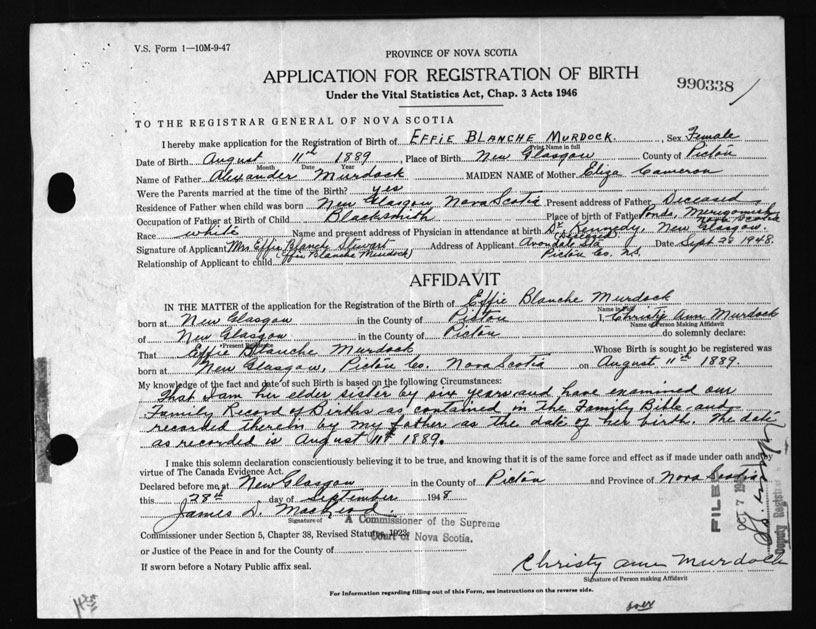 V.S. Form 1—10M-9-47
PROVINCE OF NOVA SCOTIA
APPLICATION FOR REGISTRATION OF BIRTH
990338
Under the Vital Statistics Act, Chap. 3 Acts 1946
TO THE REGISTRAR GENERAL OF NOVA SCOTIA
I hereby make application for the Registration of Birth of EFFIE BLANCHE MURDOCK. Sex Female
Print Name in full
Date of Birth August 11th 1889, Place of Birth New Glasgow County of Pictou
Month Date Year
Name of Father Alexander Murdock MAIDEN NAME of Mother Eliza Cameron
Were the Parents married at the time of Birth? yes
Residence of Father when child was born New Glasgow Nova Scotia Present address of Father Deceased
Occupation of Father at Birth of Child Blacksmith Place of birth of Father Ponds, Merigomish Nova Scotia
Race white Name and present address of Physician in attendance at birth Dr. Kennedy, New Glasgow.
Signature of Applicant Mrs Effie Blanch Stewart Address of Applicant Avondale Sta Date Sept 1948.
(Effie Blanche Murdock) Pictou Co. N.S.
Relationship of Applicant to child
AFFIDAVIT
IN THE MATTER of the application for the Registration of the Birth of Effie Blanche Murdock
Name in Full
born at New Glasgow in the County of Pictou I, Christy Ann Murdock
Name of Person Making Affidavit
of New Glasgow in the County of Pictou do solemnly declare:
Present Residence
That Effie Blanche Murdock Whose Birth is sought to be registered was
born at New Glasgow, Pictou Co. Nova Scotia on August 11th 1889.
My knowledge of the fact and date of such Birth is based on the following Circumstances:
That I am her elder sister by six years and have examined our
Family Record of Births as contained in The Family Bible and
recorded therein by my father as the date of her birth. The date
as recorded is August 11th 1889.
I make this solemn declaration conscientiously believing it to be true, and knowing that it is of the same force and effect as if made under oath and by
virtue of The Canada Evidence Act.
Declared before me at New Glasgow in the County of Pictou and Province of Nova Scotia
this 28th day of September 1948
James D. MacLeod
Signature of A Commissioner of the Supreme
Commissioner under Section 5, Chapter 38, Revised Statutes, 1923. Court of Nova Scotia.
or Justice of the Peace in and for the County of
If sworn before a Notary Public affix seal.
Christy Ann Murdock
Signature of Person making Affidavit
For Information regarding filling out of this Form, see instructions on the reverse side.
over
FILED
OCT 7
Deputy Registrar